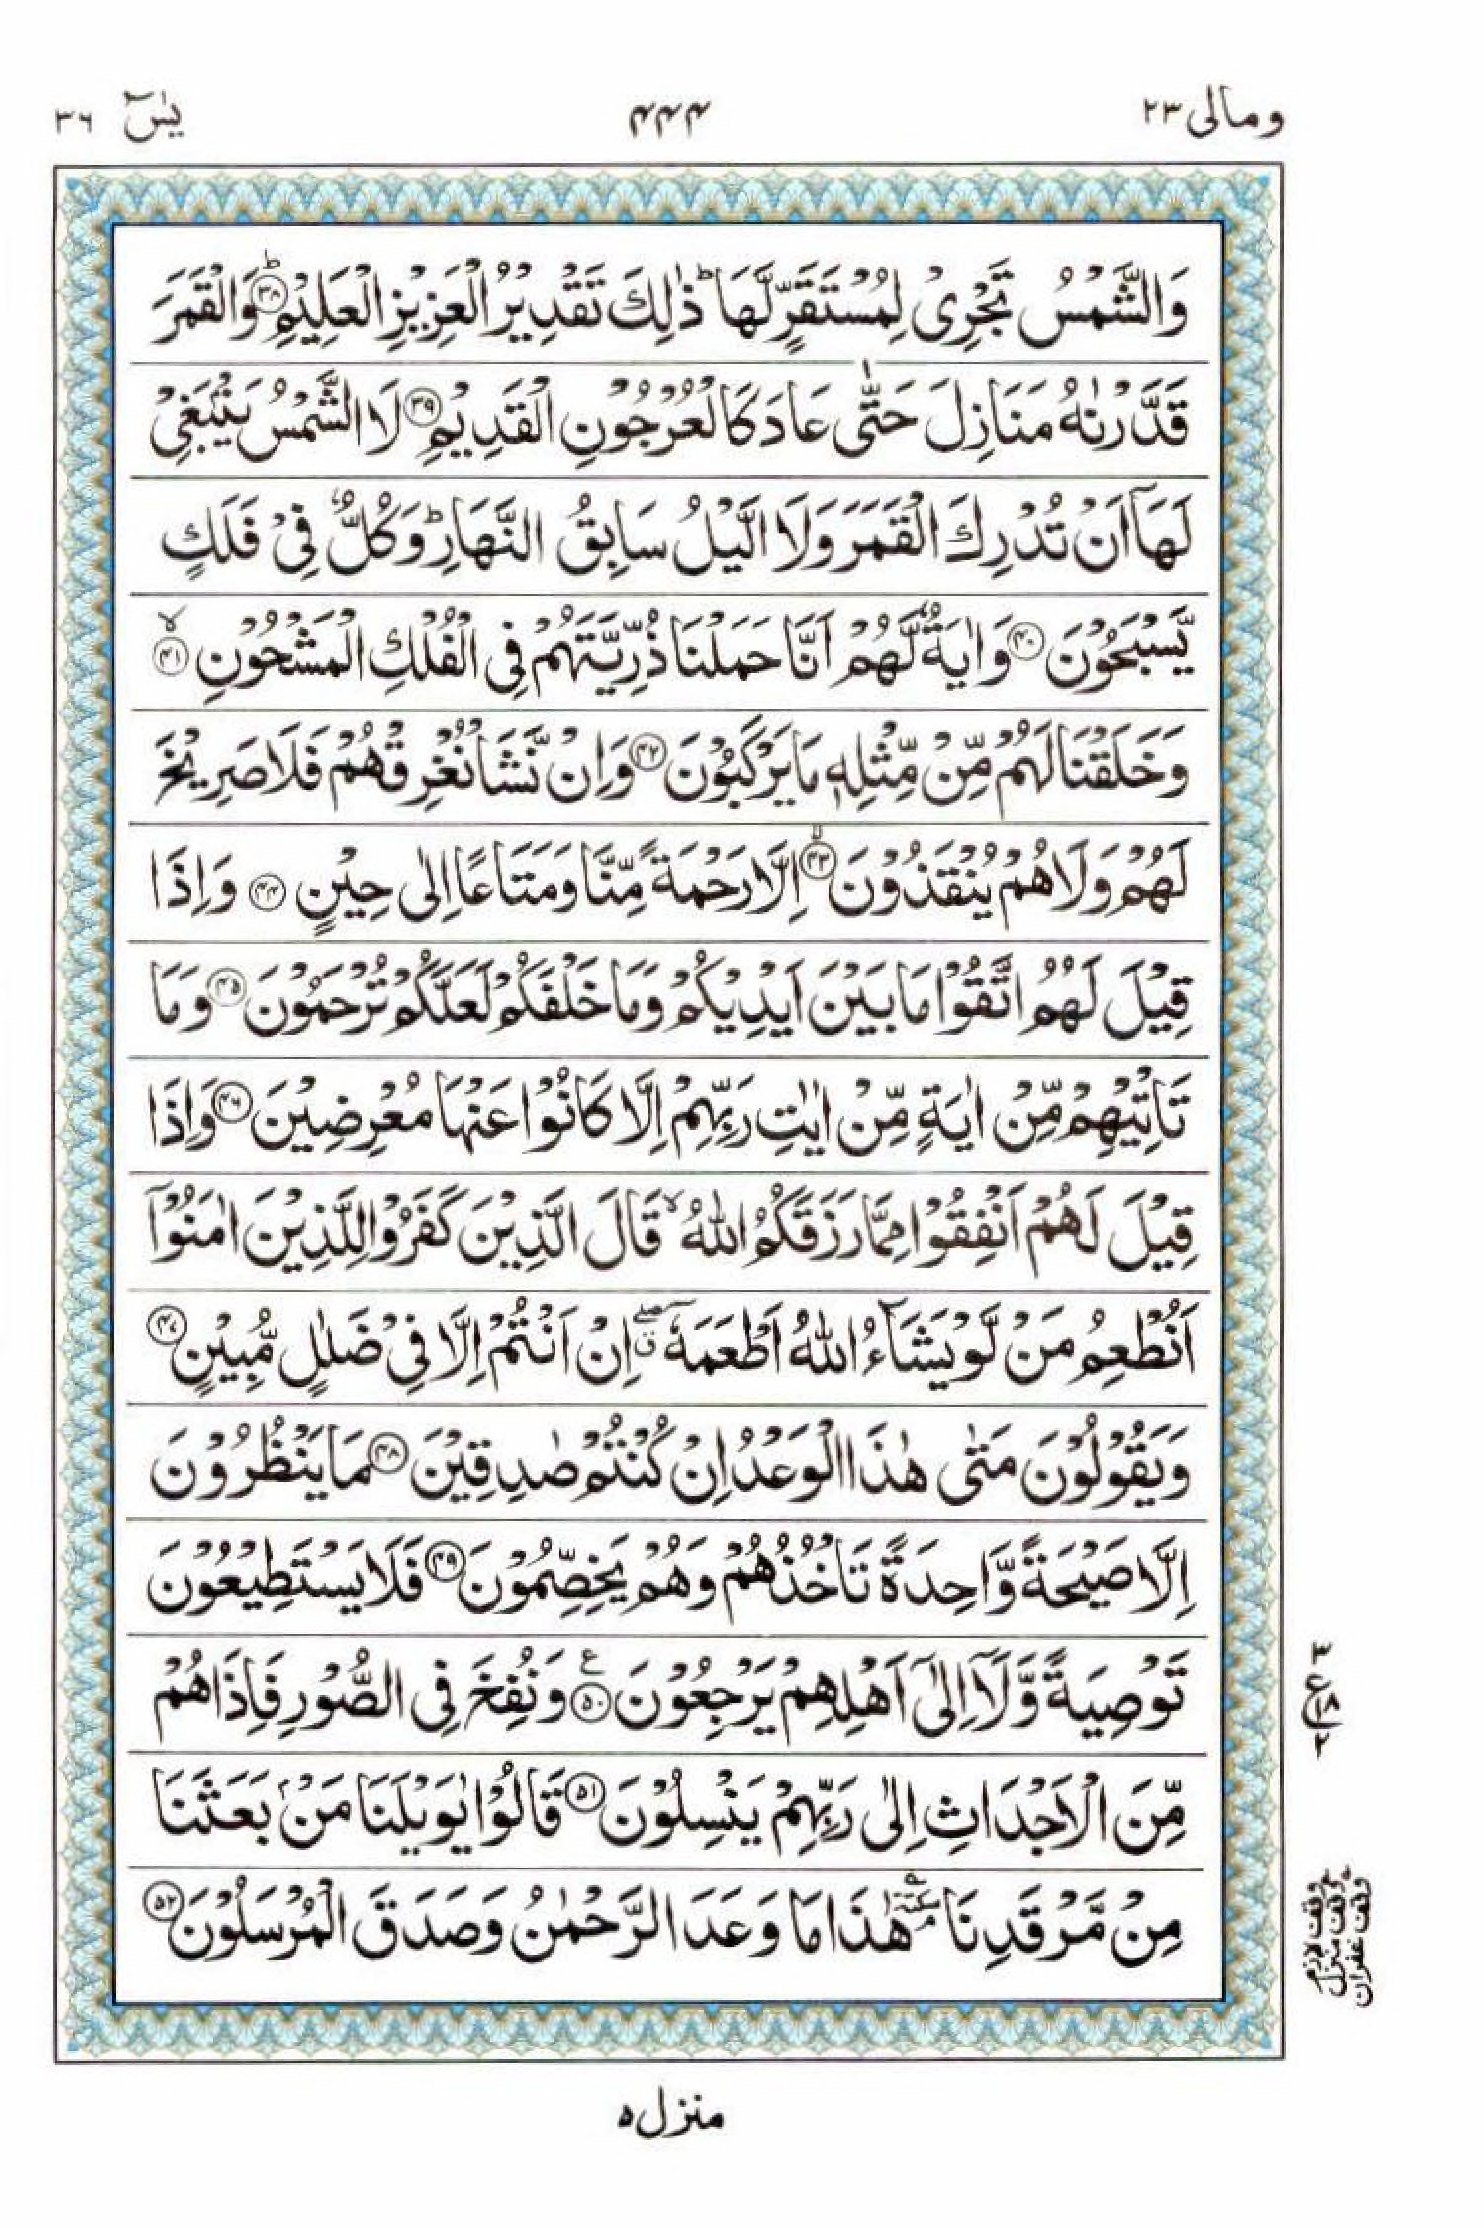 ومالی ٢٣
٤٤٤
يٰسٓ ٣٦
وَالشَّمْسُ تَجْرِيْ لِمُسْتَقَرٍّ لَّهَا ؕ ذٰلِكَ تَقْدِيْرُ الْعَزِيْزِ الْعَلِيْمِ ؕ﴿٣٨﴾ وَالْقَمَرَ
قَدَّرْنٰهُ مَنَازِلَ حَتّٰى عَادَ كَالْعُرْجُوْنِ الْقَدِيْمِ ﴿٣٩﴾ لَا الشَّمْسُ يَنْۢبَغِيْ
لَهَاۤ اَنْ تُدْرِكَ الْقَمَرَ وَلَا الَّيْلُ سَابِقُ النَّهَارِ ؕ وَكُلٌّ فِيْ فَلَكٍ
يَّسْبَحُوْنَ ﴿٤٠﴾ وَاٰيَةٌ لَّهُمْ اَنَّا حَمَلْنَا ذُرِّيَّتَهُمْ فِي الْفُلْكِ الْمَشْحُوْنِ ۙ﴿٤١﴾
وَخَلَقْنَا لَهُمْ مِّنْ مِّثْلِهٖ مَا يَرْكَبُوْنَ ﴿٤٢﴾ وَاِنْ نَّشَاْ نُغْرِقْهُمْ فَلَا صَرِيْخَ
لَهُمْ وَلَا هُمْ يُنْقَذُوْنَ ۙ﴿٤٣﴾ اِلَّا رَحْمَةً مِّنَّا وَمَتَاعًا اِلٰى حِيْنٍ ﴿٤٤﴾ وَاِذَا
قِيْلَ لَهُمُ اتَّقُوْا مَا بَيْنَ اَيْدِيْكُمْ وَمَا خَلْفَكُمْ لَعَلَّكُمْ تُرْحَمُوْنَ ﴿٤٥﴾ وَمَا
تَاْتِيْهِمْ مِّنْ اٰيَةٍ مِّنْ اٰيٰتِ رَبِّهِمْ اِلَّا كَانُوْا عَنْهَا مُعْرِضِيْنَ ﴿٤٦﴾ وَاِذَا
قِيْلَ لَهُمْ اَنْفِقُوْا مِمَّا رَزَقَكُمُ اللّٰهُ ۙ قَالَ الَّذِيْنَ كَفَرُوْا لِلَّذِيْنَ اٰمَنُوْۤا
اَنُطْعِمُ مَنْ لَّوْ يَشَآءُ اللّٰهُ اَطْعَمَهٗۤ ۖ اِنْ اَنْتُمْ اِلَّا فِيْ ضَلٰلٍ مُّبِيْنٍ ﴿٤٧﴾
وَيَقُوْلُوْنَ مَتٰى هٰذَا الْوَعْدُ اِنْ كُنْتُمْ صٰدِقِيْنَ ﴿٤٨﴾ مَا يَنْظُرُوْنَ
اِلَّا صَيْحَةً وَّاحِدَةً تَاْخُذُهُمْ وَهُمْ يَخِصِّمُوْنَ ﴿٤٩﴾ فَلَا يَسْتَطِيْعُوْنَ
تَوْصِيَةً وَّلَاۤ اِلٰۤى اَهْلِهِمْ يَرْجِعُوْنَ ﴿٥٠﴾ ع وَنُفِخَ فِي الصُّوْرِ فَاِذَا هُمْ
مِّنَ الْاَجْدَاثِ اِلٰى رَبِّهِمْ يَنْسِلُوْنَ ﴿٥١﴾ قَالُوْا يٰوَيْلَنَا مَنْۢ بَعَثَنَا
مِنْ مَّرْقَدِنَا ۘ سكتة هٰذَا مَا وَعَدَ الرَّحْمٰنُ وَصَدَقَ الْمُرْسَلُوْنَ ﴿٥٢﴾
٣
ع
١٨
٢
وقف لازم
وقف منزل
وقف غفران
منزل ٥